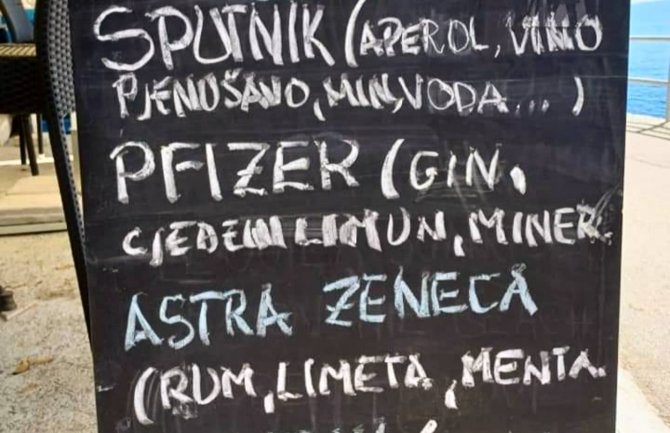 SPUTNIK (APEROL, VINO
PJENUŠAVO, MIN,VODA...)
PFIZER (GIN,
CJEĐENI LIMUN, MINER.
ASTRA ZENECA
(RUM, LIMETA, MENTA